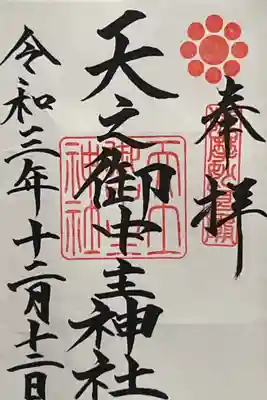 奉拝
天之御中主神社
令和三年十二月十二日